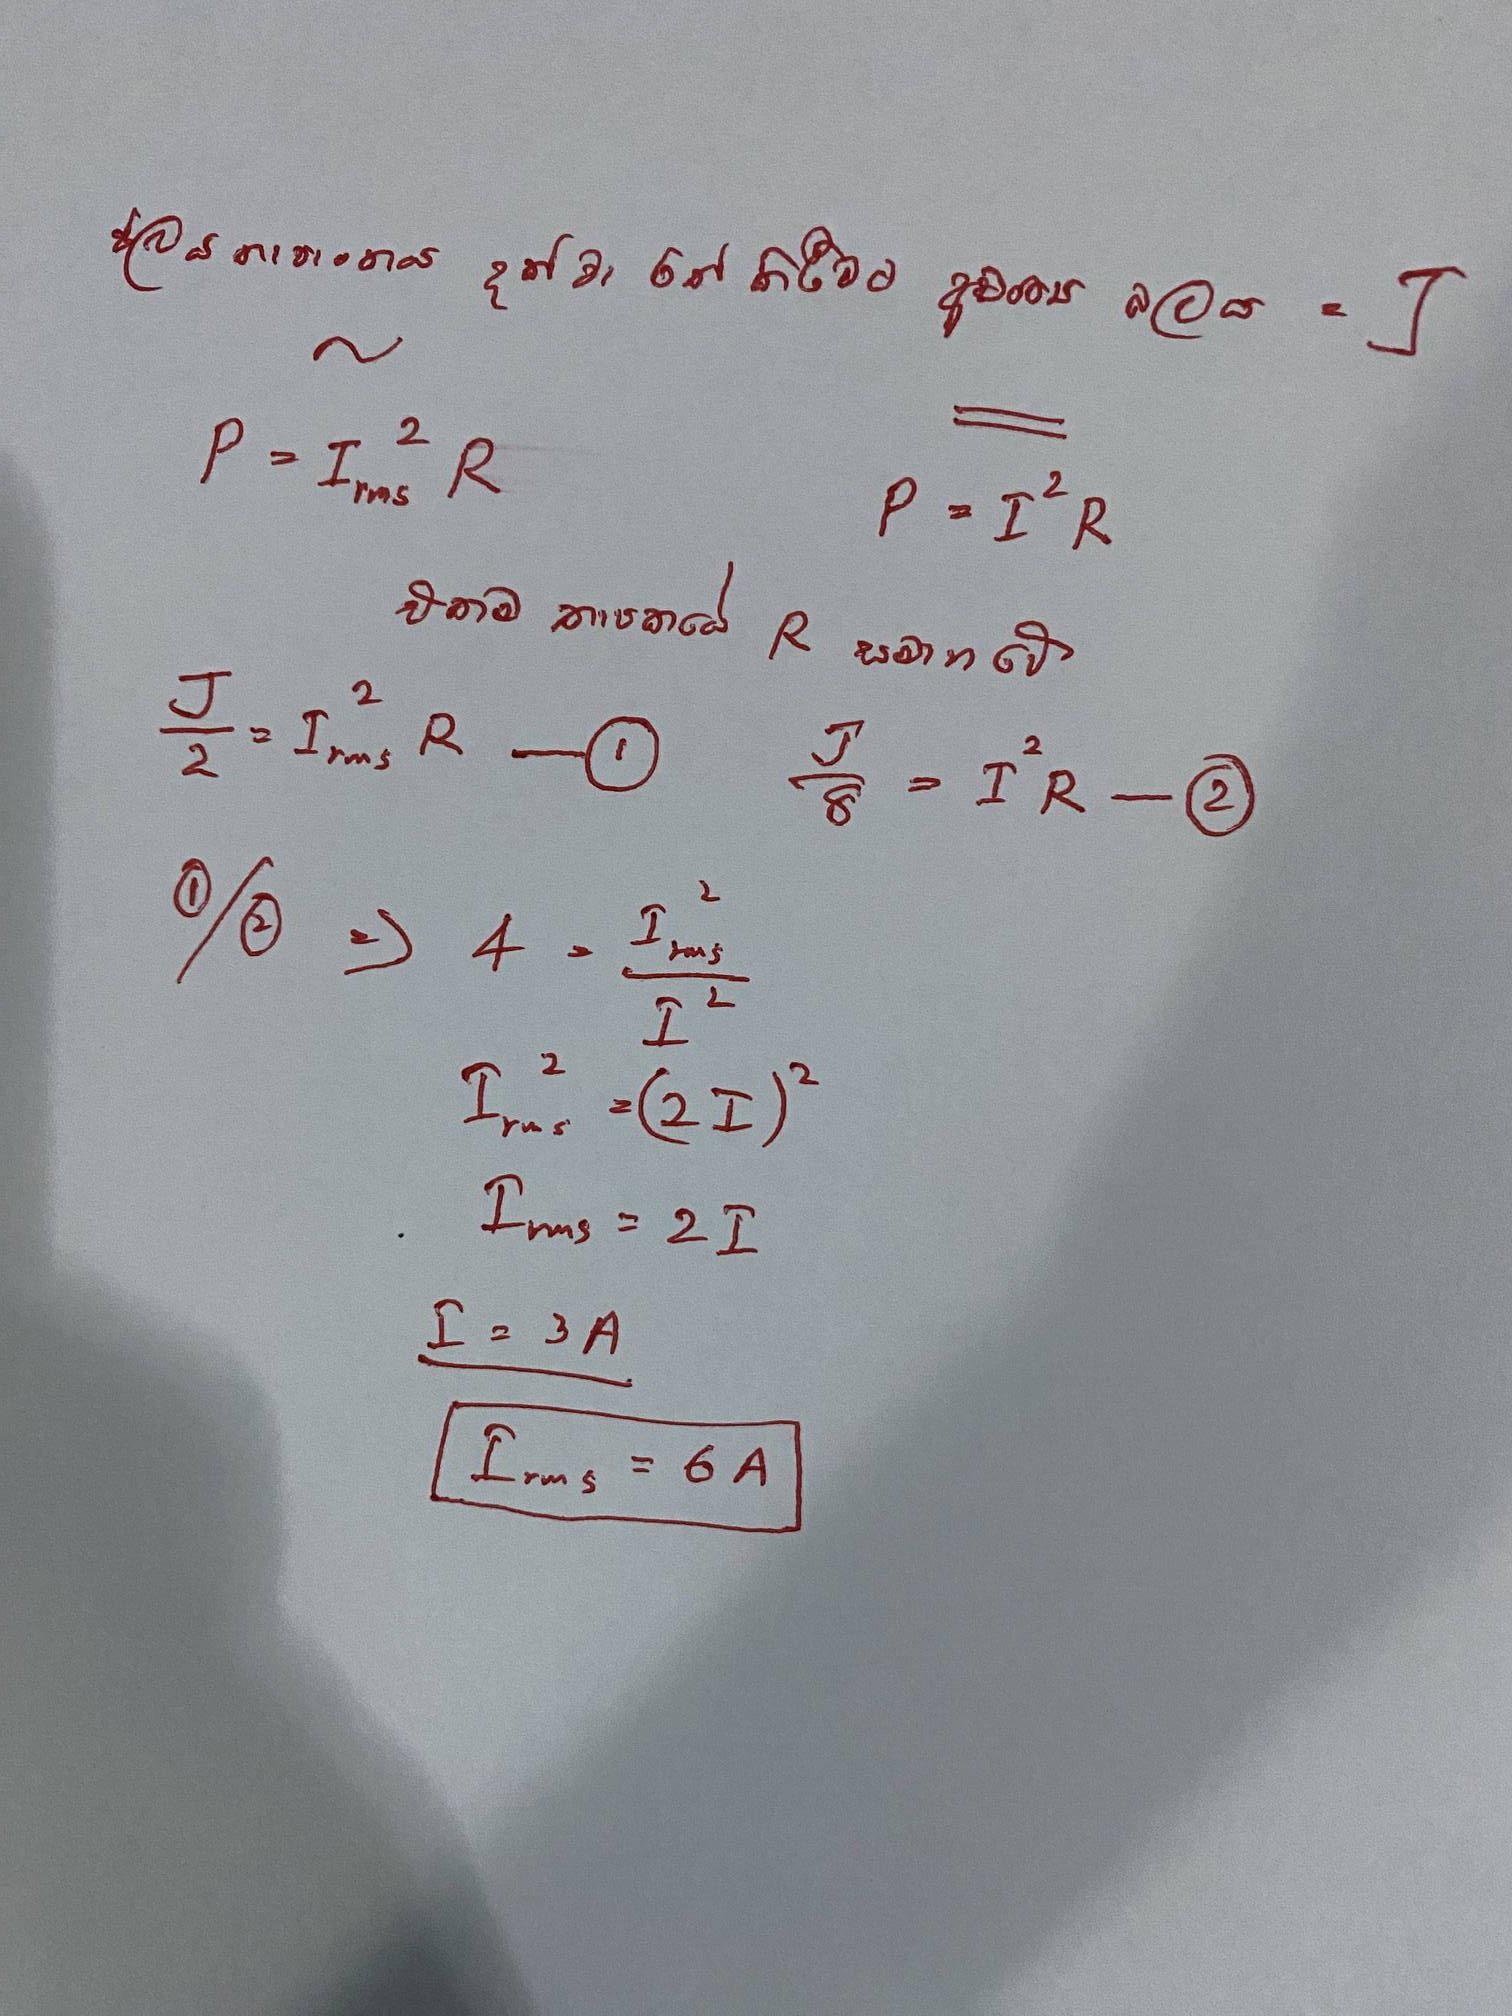 ජලය තාපාංකය දක්වා රත් කිරීමට අවශ්‍ය බලය = J
~
P = I_rms² R
P = I² R
එකම තාපකයේ R සමාන වේ
J/2 = I_rms² R — ①
J/8 = I² R — ②
①/② ⇒ 4 = I_rms²/I²
I_rms² = (2I)²
I_rms = 2I
I = 3A
I_rms = 6A